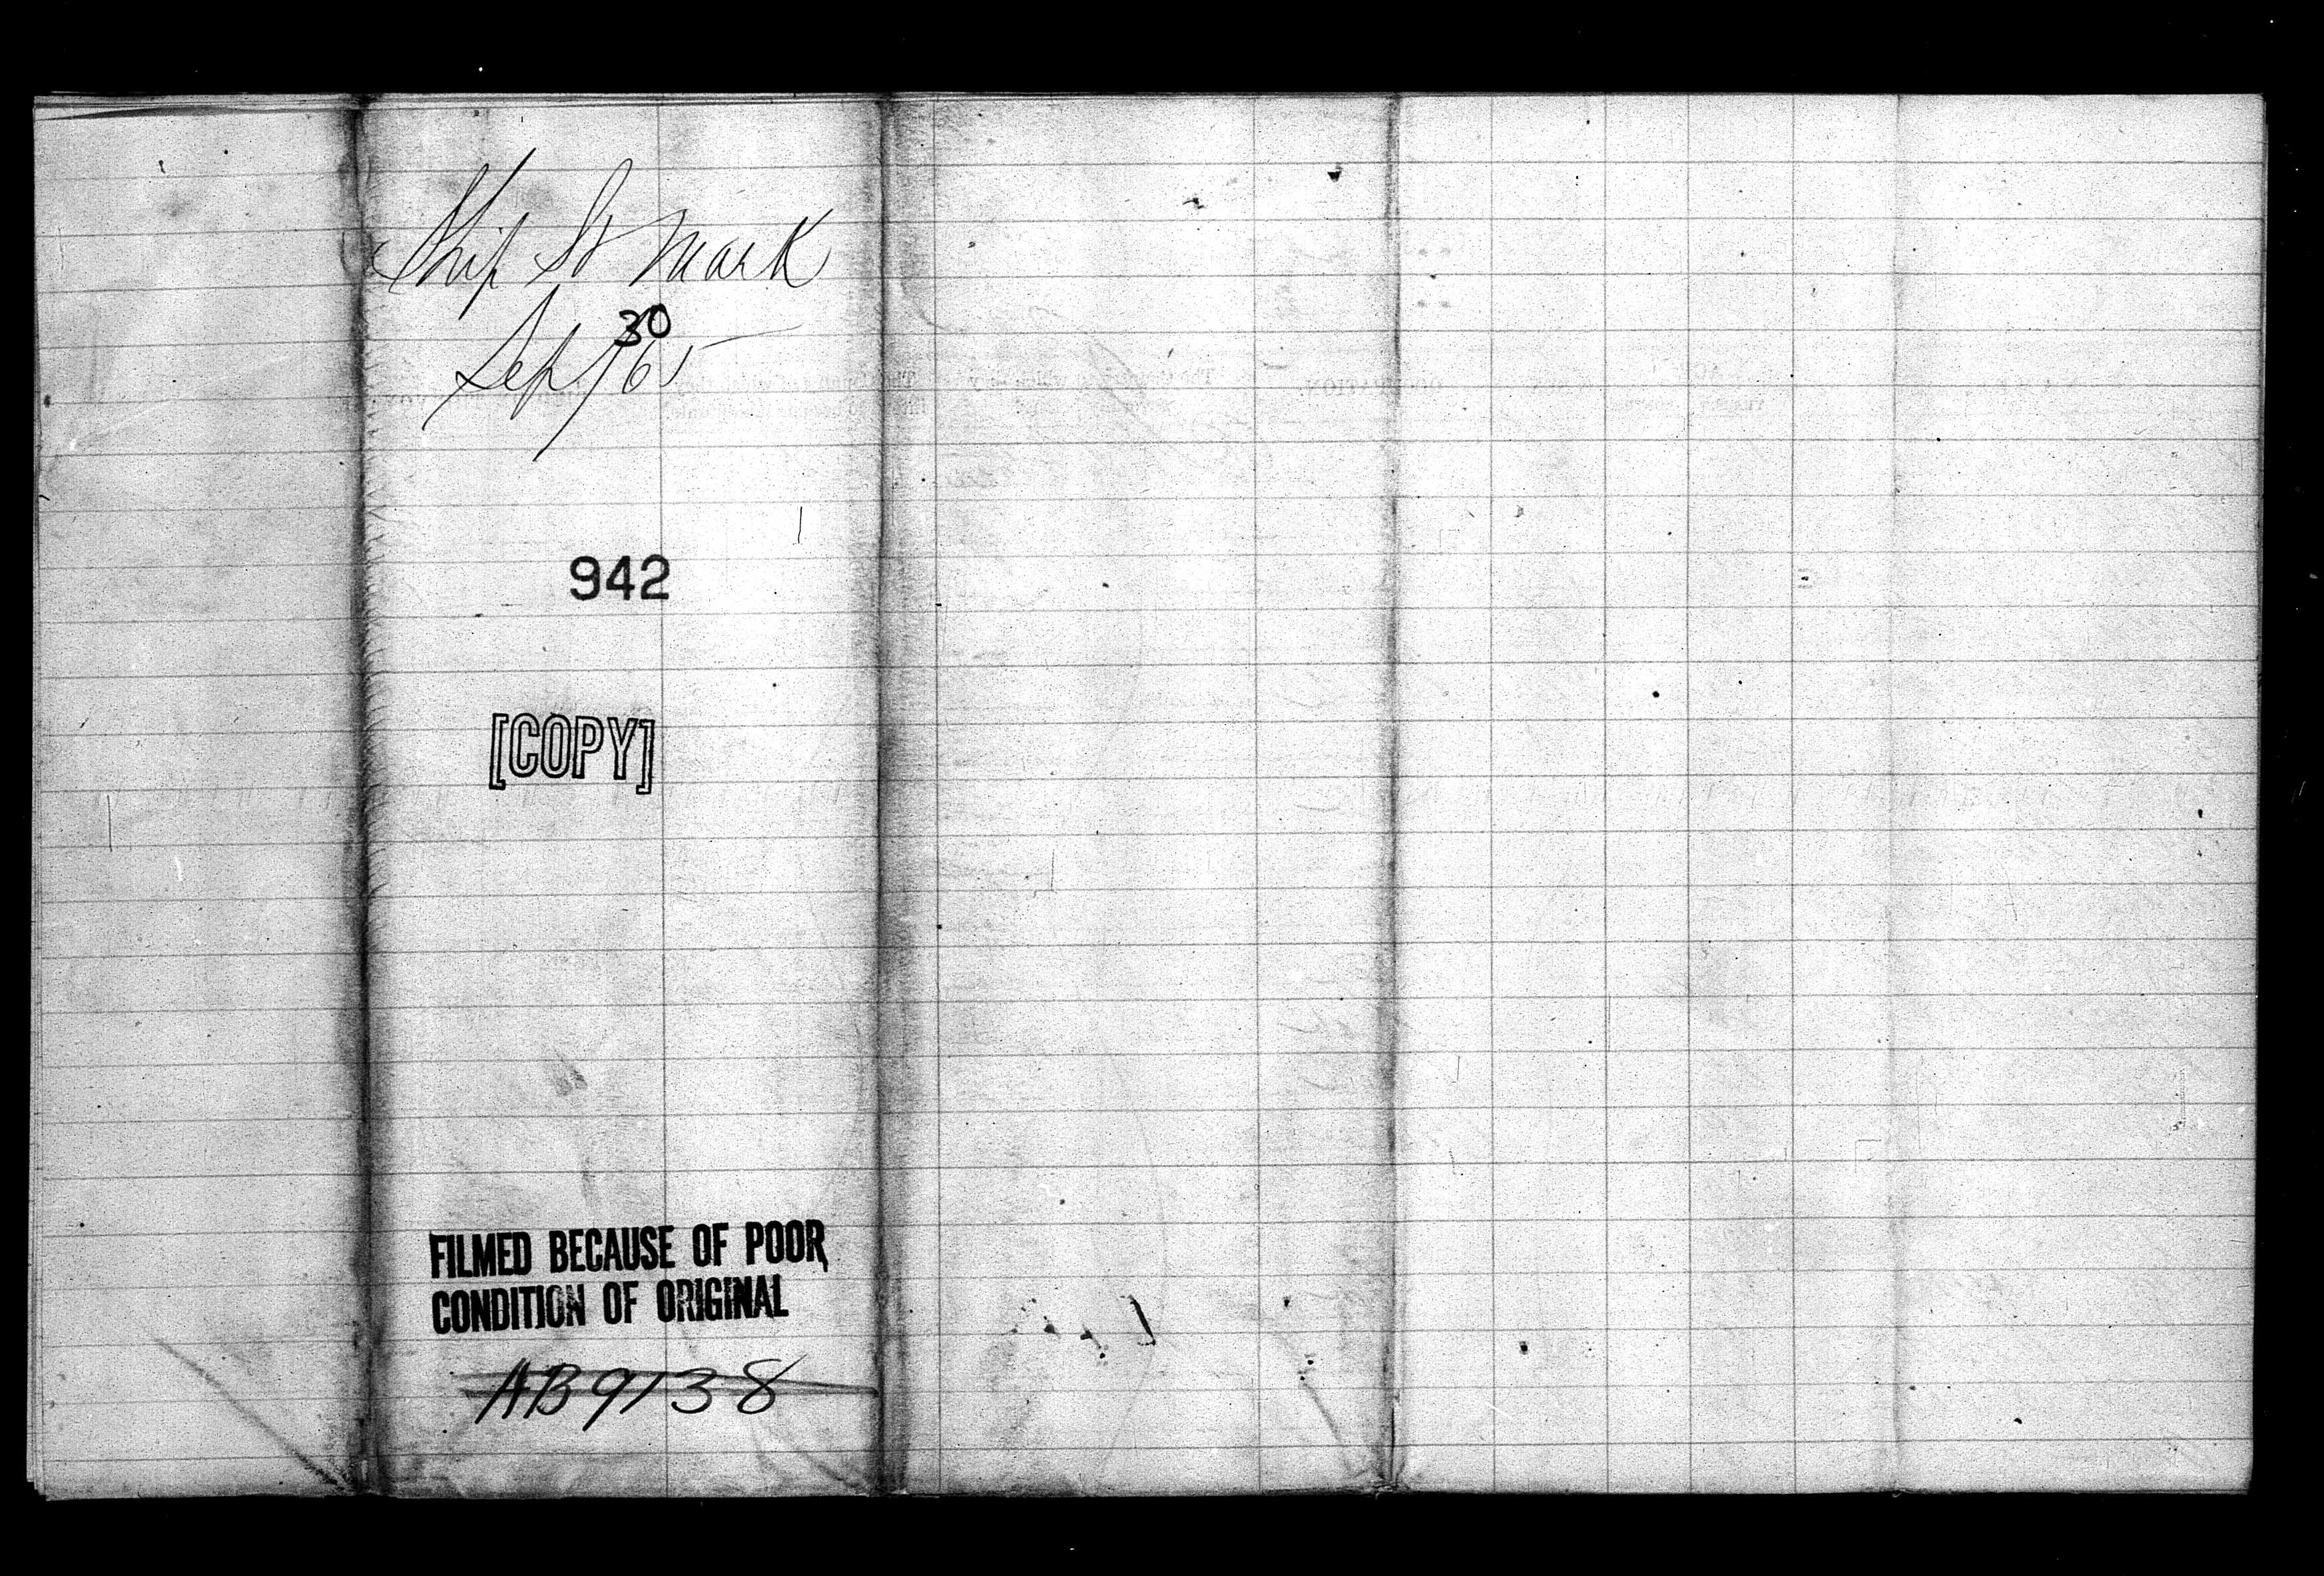 Ship St Mark
30
Sep/65
942
[COPY]
FILMED BECAUSE OF POOR
CONDITION OF ORIGINAL
AB9138